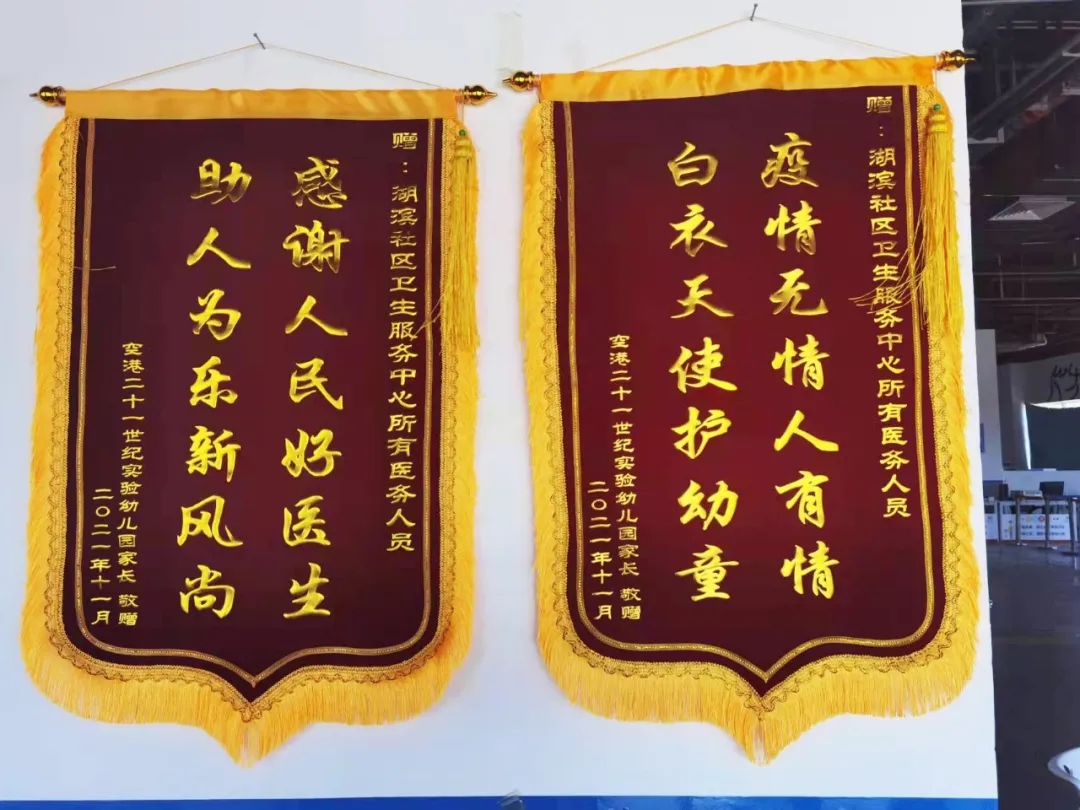 赠：湖滨社区卫生服务中心所有医务人员
感谢人民好医生
助人为乐新风尚
空港二十一世纪实验幼儿园家长 敬赠
二〇二一年十一月
赠：湖滨社区卫生服务中心所有医务人员
疫情无情人有情
白衣天使护幼童
空港二十一世纪实验幼儿园家长 敬赠
二〇二一年十一月